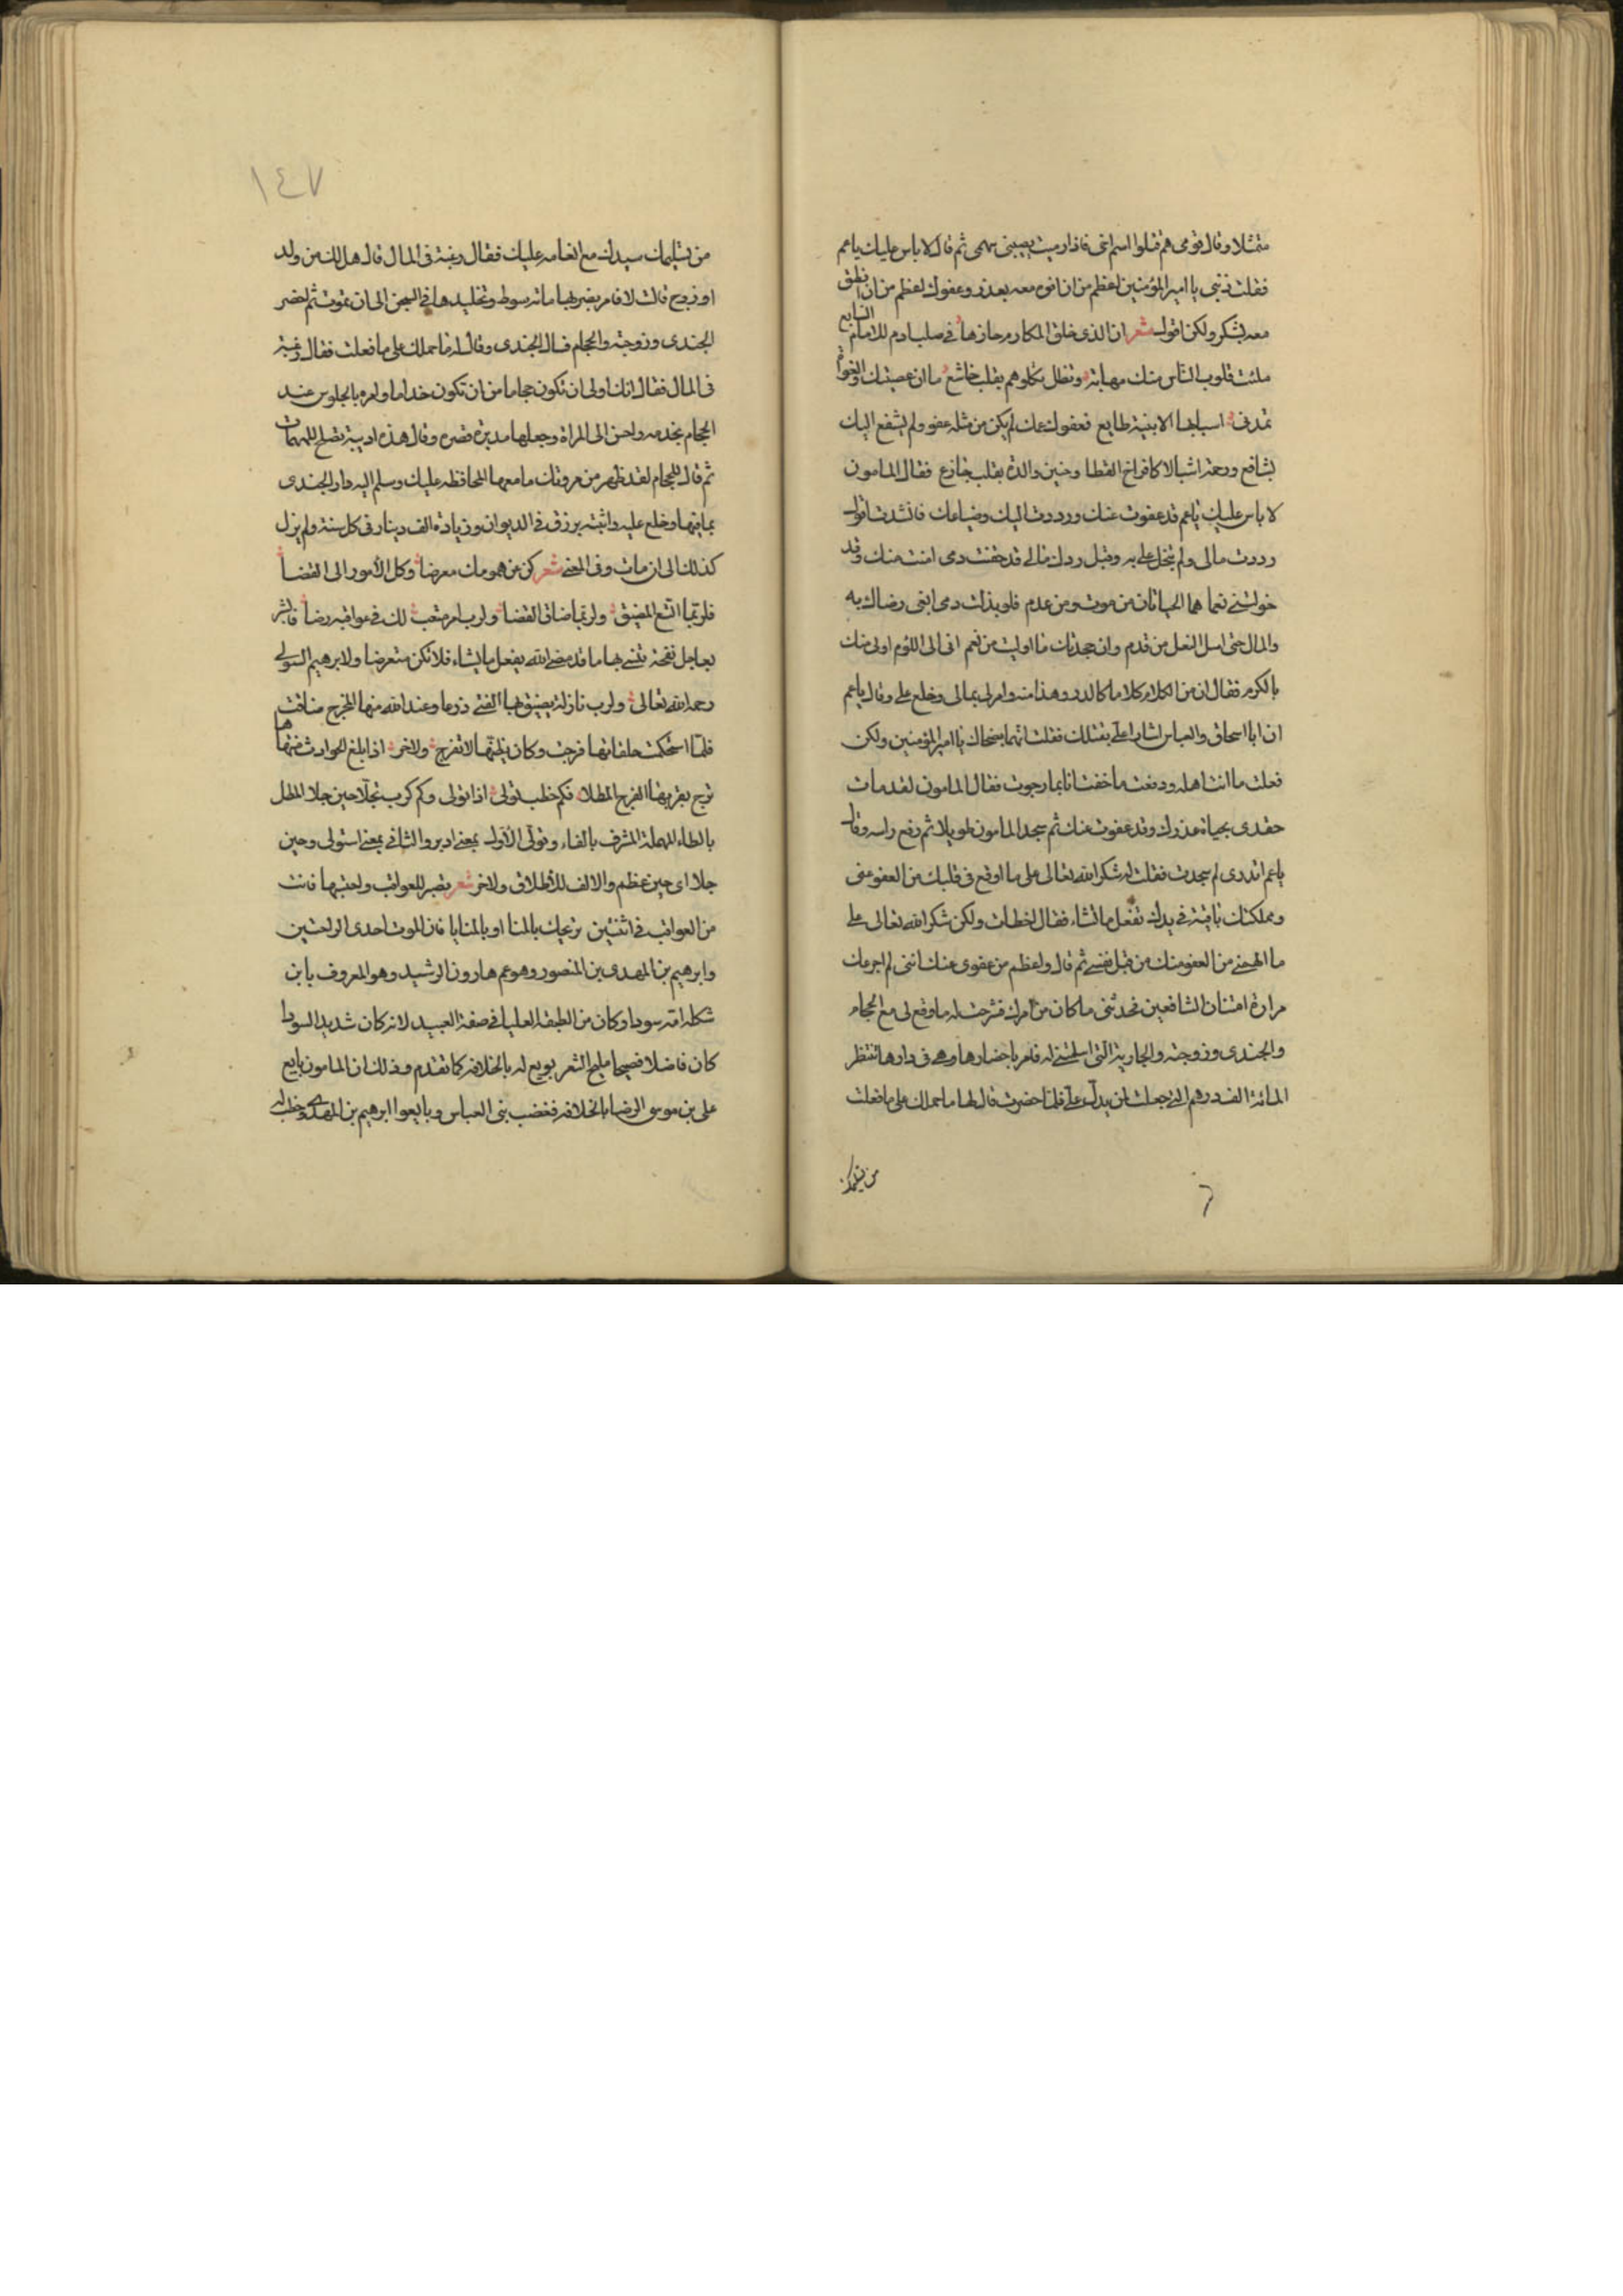 متمثلا وقال قومي هم قتلوا اميم اخي فاذا رميت يصيبني سهمي ثم قال لا باس عليك ياعم
فقلت ذنبي يا امير المؤمنين اعظم من ان افوه معه بعذر وعفوك اعظم من ان انطق
معه بشكر ولكن اقول شعر ان الذي خلق المكارم حازها في صلب ادم للامام السابع
ملئت قلوب الناس منك مهابة وتظل تكلوهم بقلب خاشع ما ان عصيتك والغواة
تمدني اسبابها الا بنية طايع فعفوت عمن لم يكن من مثله عفو ولم يشفع اليك
بشافع ورحمت اشبالا كافراخ القطا وحنين والدة بقلب جازع فقال المامون
لا باس عليك ياعم قد عفوت عنك ورددت اليك وضياعك فانشدت اقول
رددت مالي ولم تبخل علي به وقبل ردك مالي قد حقنت دمي امنت منك وقد
خولتني نعما هما الحياتان من موت ومن عدم فلو بذلت دمي ابغي رضاك به
والمال حتى اسل النعل من قدم وان جحدتك ما اوليت من نعم اني الى اللوم اولى منك
بالكرم فقال ان من الكلام كلاما كالدر وهذا منه وامر لي بمالي وخلع علي وقال ياعم
ان ابا اسحاق والعباس اشارا علي بقتلك فقلت انهما نصحاك يا امير المؤمنين ولكن
فعلت ما انت اهله ودفعت ما خفت انا بما رجوت فقال المامون لقد مات
حقدي بحياة عذرك وقد عفوت عنك ثم سجد المامون طويلا ثم رفع راسه وقال
ياعم اتدري لم سجدت فقلت له شكرا لله تعالى على ما اوقع في قلبك من العفو عني
ومملكتك باقية في يدك تفعل ما تشاء فقال اخطات ولكن شكرا لله تعالى على
ما الهمني من العفو منك من قبل نفسي ثم قال واعظم من عفوي عنك انني لم اجرعك
مرارة امتنان الشافعين فحدثني ما كان من امرك فشرحت له ما وقع لي مع الحجام
والجندي وزوجته والجارية التي اسلمتني له فامر باحضارها وهي في دارها تنتظر
المائة الف درهم التي جعلت لمن يدل علي فلما حضرت قال لها ما حملك على ما فعلت
من تسليمك
١٤٧
من تسليمك سيدك مع انعامه عليك فقال رغبة في المال قال هل لك من ولد
او زوج قالت لا فامر بضربها مائة سوط وتخليدها في السجن الى ان تموت ثم احضر
الجندي وزوجته والحجام فسال الجندي وقال له ما حملك على ما فعلت فقال رغبة
في المال فقال انك اولى ان تكون حجاما من ان تكون خداما وامره بالجلوس عند
الحجام يخدمه واحسن الى المراة وجعلها مديرة قصره وقال هذه اديبة تصلح للمهمات
ثم قال للحجام لقد ظهر من مروتك ما معها المحافظه عليك وسلم اليه دار الجندي
بما فيها وخلع عليه واثبته برزق في الديوان وزيادة الف دينار في كل سنة ولم يزل
كذلك الى ان مات وفي المعنى شعر كن عن همومك معرضا وكل الأمور الى القضا
فلربما اتسع المضيق ولربما ضاق الفضا ولرب امر متعب لك في عواقبه رضا فابشر
بعاجل نفحة تنسى بها ما قد مضى الله يفعل ما يشاء فلا تكن متعرضا ولابرهيم الصولي
رحمه الله تعالى ولرب نازلة يضيق بها الفتى ذرعا وعند الله منها المخرج ضاقت
فلما استحكمت حلقاتها فرجت وكان يظنها لا تفرج ولاخر اذا بلغ الحوادث منتهاها
ترج بقربها الفرج المطلا فكم خطب تولى اذا تولى وكم كرب تجلا حين جلا المطل
بالطاء المهملة المشرف بالفاء وتولى الأول بمعنى ادبر والثاني بمعنى استولى وحين
جلا اي حين عظم والالف للأطلاق ولاخر شعر تصبر للعواقب واحتسبها فانت
من العواقب في اثنتين تريحك بالمنا او بالمنايا فان الموت احدى الراحتين
وابرهيم بن المهدي بن المنصور وهو عم هارون الرشيد وهو المعروف بابن
شكله امه سودا وكان من الطبقة العليا في صفة العبيد لانه كان شديد السودا
كان فاضلا فصيحا مليح الشعر بويع له بالخلافة كما تقدم وذلك ان المامون بايع
على بن موسى الرضا بالخلافه فغضب بني العباس وبايعوا ابرهيم بن المهدي وخطب له